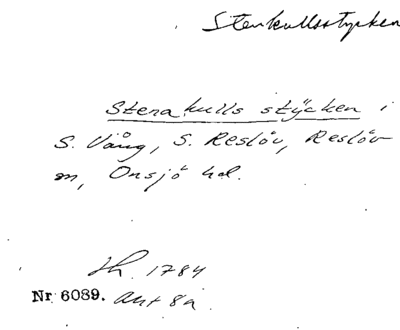 Stenkullsstycken
Stena kulls stÿcken i
S. Vång, S. Reslöv, Reslöv
sn, Onsjö hd.
Lh. 1784
Nr 6089. Akt 8a